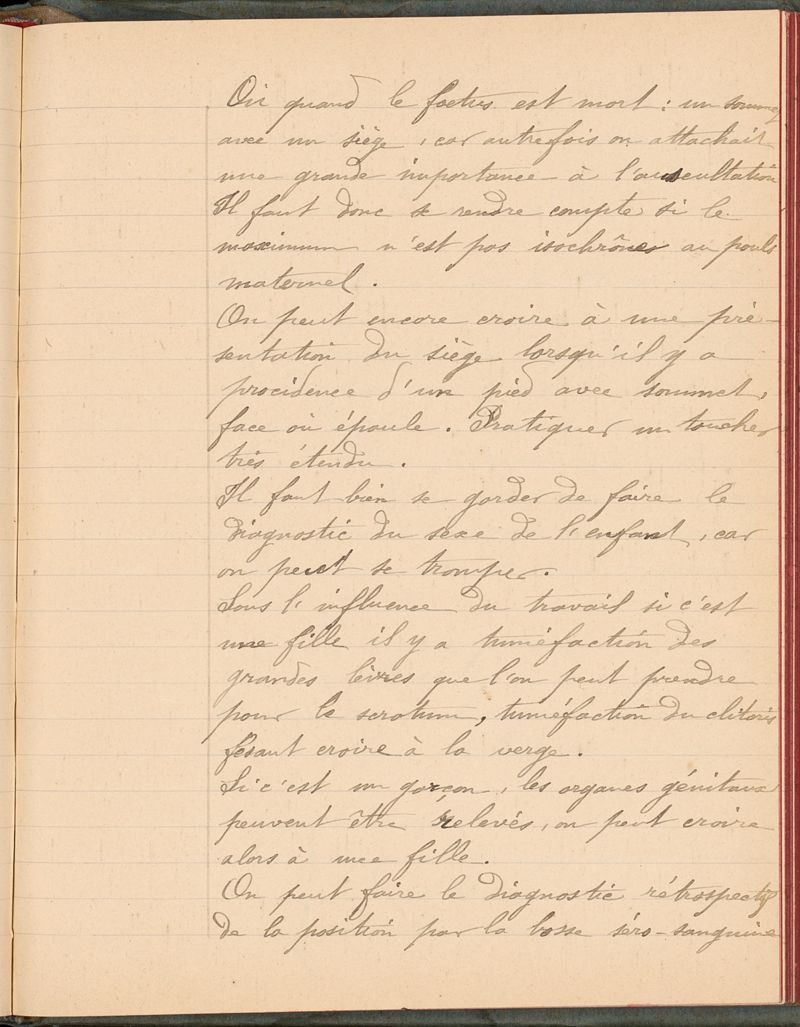 Où quand le foetus est mort : un sommet
avec un siège, car autrefois on attachait
une grande importance à l'auscultation
Il faut donc se rendre compte si le
maximum n'est pas isochrônes au pouls
maternel.
On peut encore croire à une pré-
sentation du siège lorsqu'il y a
procidence d'un pied avec sommet,
face où épaule. Pratiquer un toucher
très étendu.
Il faut bien se garder de faire le
diagnostic du sexe de l'enfant, car
on peut se tromper.
Sous l'influence du travail si c'est
une fille il y a tuméfaction des
grandes lèvres que l'on peut prendre
pour le scrotum, tuméfaction du clitoris
fesant croire à la verge.
Si c'est un garçon, les organes génitaux
peuvent être relevés, on peut croire
alors à une fille.
On peut faire le diagnostic rétrospectif
de la position par la bosse séro-sanguine